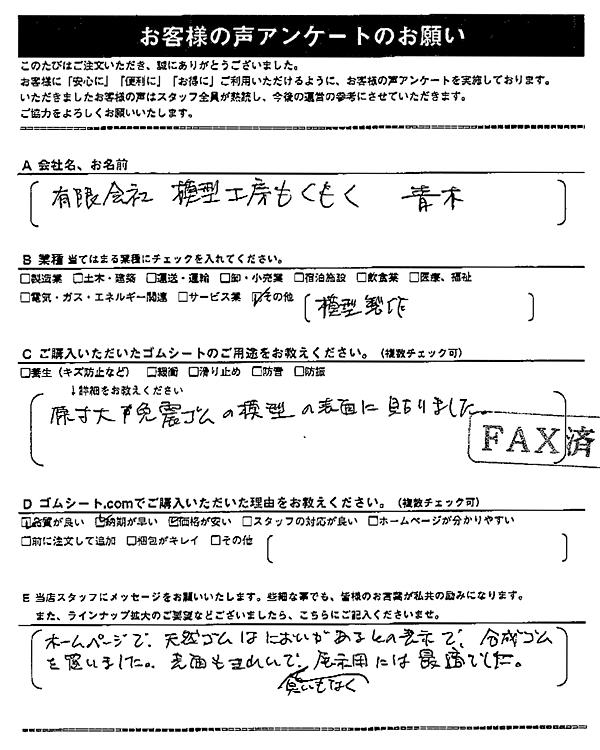 お客様の声アンケートのお願い
このたびはご注文いただき、誠にありがとうございました。
お客様に「安心に」「便利に」「お得に」ご利用いただけるように、お客様の声アンケートを実施しております。
いただきましたお客様の声はスタッフ全員が熟読し、今後の運営の参考にさせていただきます。
ご協力をよろしくお願いいたします。
A 会社名、お名前
有限会社 模型工房もくもく 青木
B 業種 当てはまる業種にチェックを入れてください。
□製造業 □土木・建築 □運送・運輸 □卸・小売業 □宿泊施設 □飲食業 □医療、福祉
□電気・ガス・エネルギー関連 □サービス業 ☑その他 (模型製作)
C ご購入いただいたゴムシートのご用途をお教えください。(複数チェック可)
□養生(キズ防止など) □緩衝 □滑り止め □防音 □防振
↓詳細をお教えください
原寸大の免震ゴムの模型の表面に貼りました。
FAX済
D ゴムシート.comでご購入いただいた理由をお教えください。(複数チェック可)
☑品質が良い ☑納期が早い ☑価格が安い □スタッフの対応が良い □ホームページが分かりやすい
□前に注文して追加 □梱包がキレイ □その他 ( )
E 当店スタッフにメッセージをお願いいたします。些細な事でも、皆様のお言葉が私共の励みになります。
また、ラインナップ拡大のご要望などございましたら、こちらにご記入くださいませ。
ホームページで、天然ゴムはにおいがあるとの表示で、合成ゴム
を買いました。表面もきれいで、展示用には最適でした。
臭いもなく